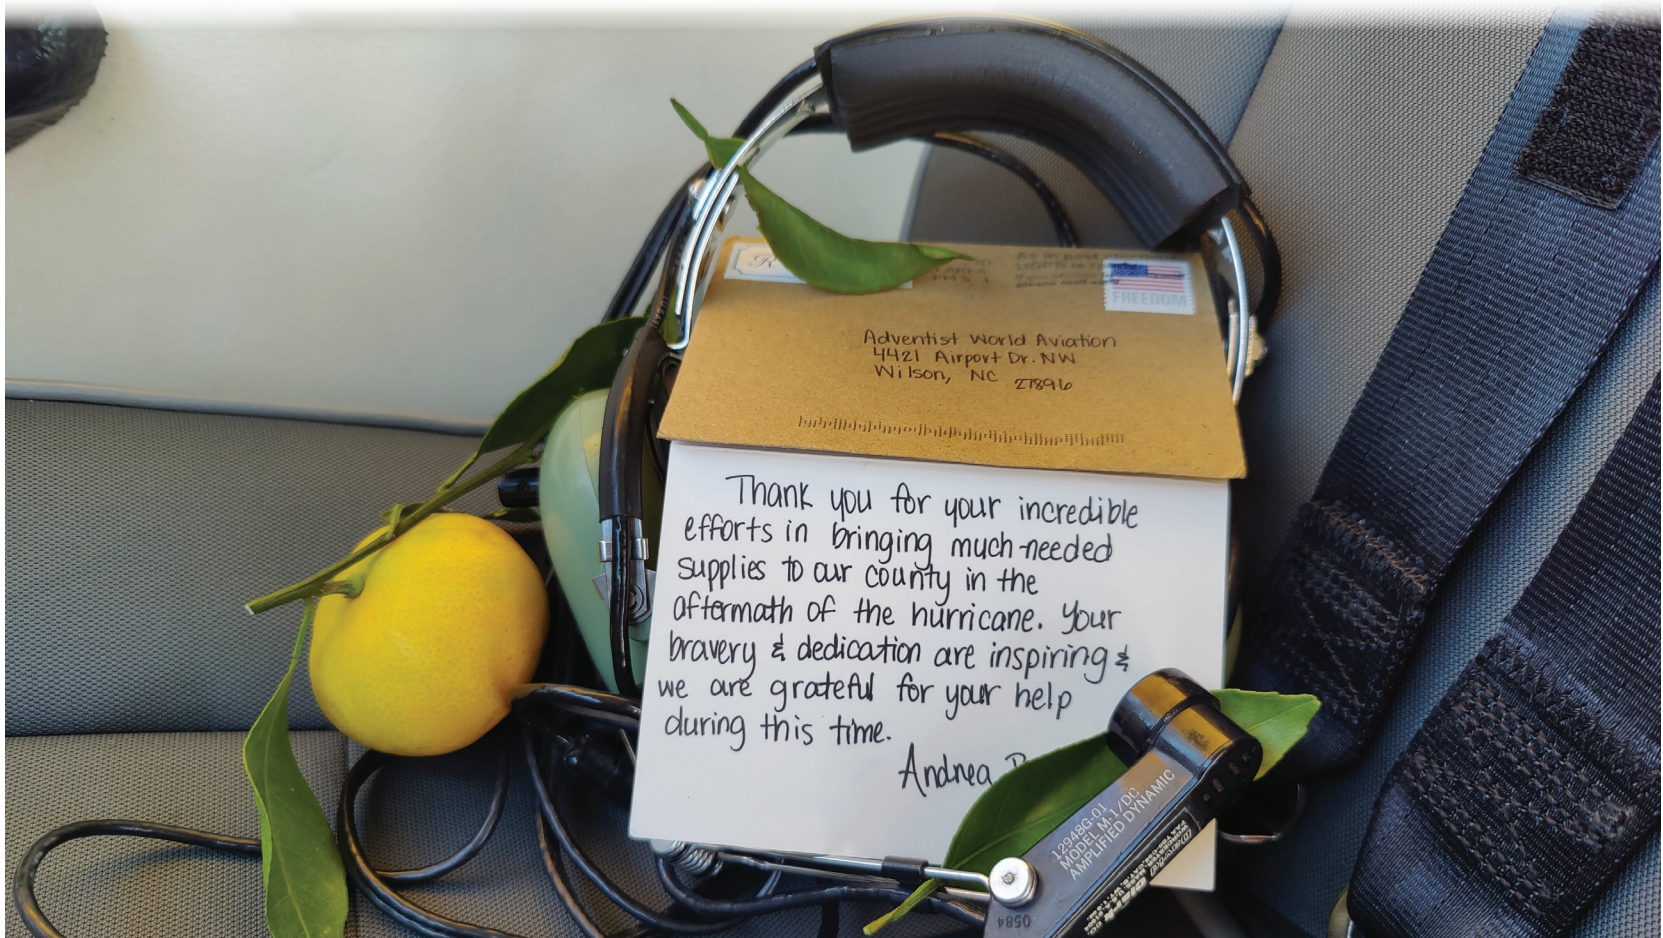 R
FREEDOM
Adventist World Aviation
4421 Airport Dr. NW
Wilson, NC 27896
Thank you for your incredible
efforts in bringing much-needed
supplies to our county in the
aftermath of the hurricane. Your
bravery & dedication are inspiring &
we are grateful for your help
during this time.
Andrea
12948G-01
MODEL M-1/DC
AMPLIFIED DYNAMIC
0584